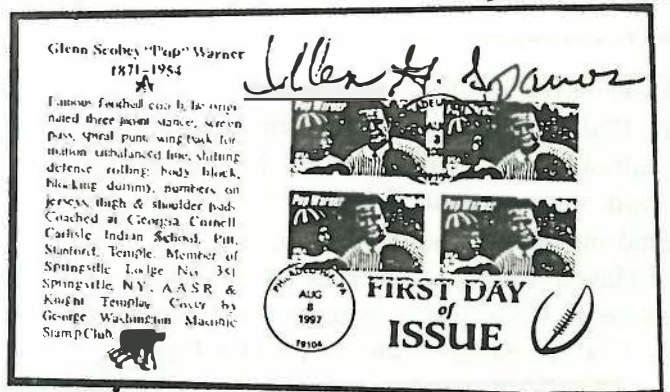 Glenn Scobey "Pop" Warner
1871-1954
Famous football coach, he origi-
nated three point stance, screen
pass, spiral punt, wingback for-
mation unbalanced line, shifting
defense rolling body block,
blocking dummy, numbers on
jerseys, thigh & shoulder pads.
Coached at Georgia, Cornell
Carlisle Indian School, Pitt,
Stanford, Temple. Member of
Springville Lodge No 351
Springville, NY, A.A.S.R. &
Knight Templar Cover by
George Washington Masonic
Stamp Club.
Pop Warner
Pop Warner
Pop Warner
Pop Warner
PHILADELPHIA, PA
AUG
8
1997
19104
FIRST DAY
of
ISSUE